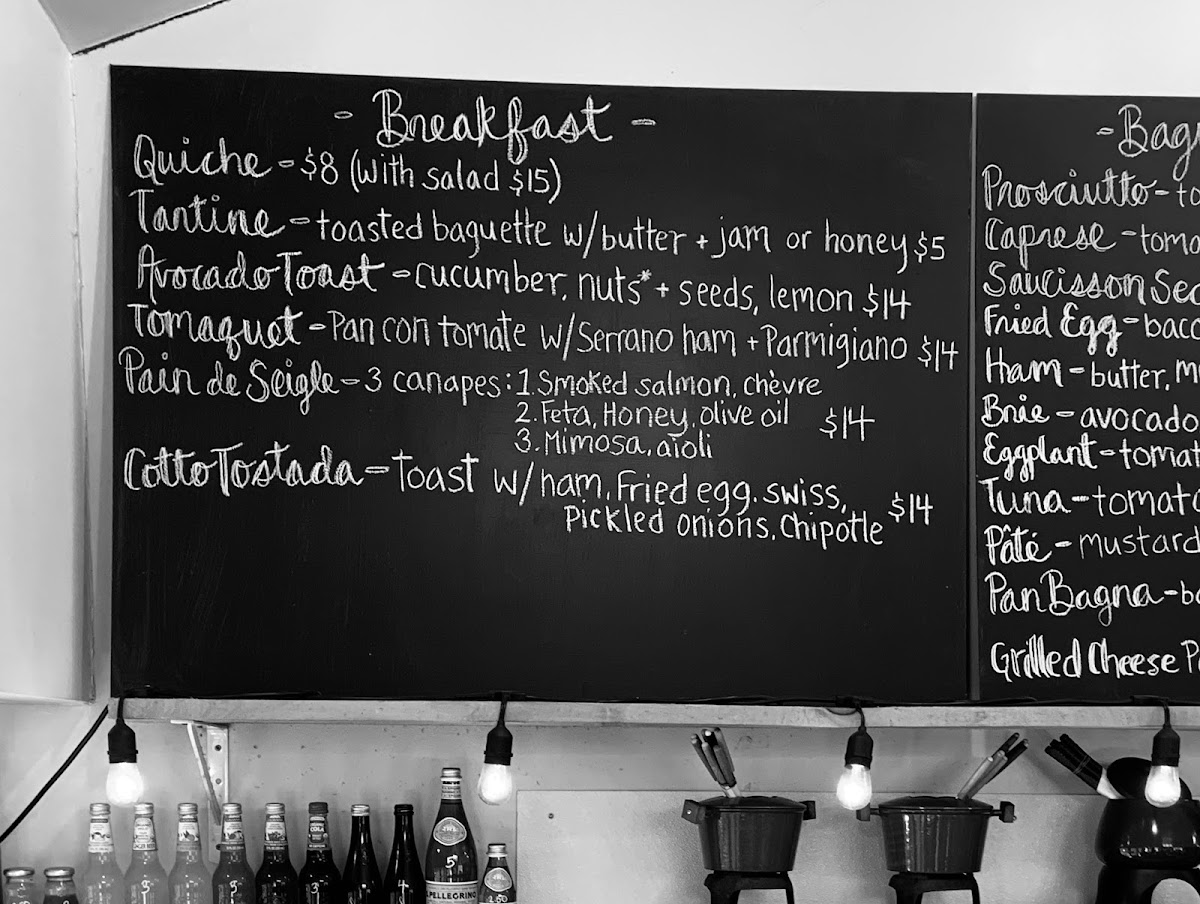 - Breakfast -
Quiche - $8 (with salad $15)
Tartine - toasted baguette w/butter + jam or honey $5
Avocado Toast - cucumber, nuts* + seeds, lemon $14
Tomaquet - Pan con tomate w/Serrano ham + Parmigiano $14
Pain de Seigle - 3 canapes: 1. Smoked salmon, chèvre
2. Feta, Honey, olive oil $14
3. Mimosa, aïoli
Cotto Tostada - Toast w/ham, Fried egg, swiss,
Pickled onions, Chipotle $14
- Bag
Prosciutto - to
Caprese - toma
Saucisson Sec
Fried Egg - baco
Ham - butter, m
Brie - avocado
Eggplant - tomat
Tuna - tomato
Pâté - mustard
Pan Bagna - ba
Grilled Cheese P
COLA
5
PELLEGRINO
3
3
4
150